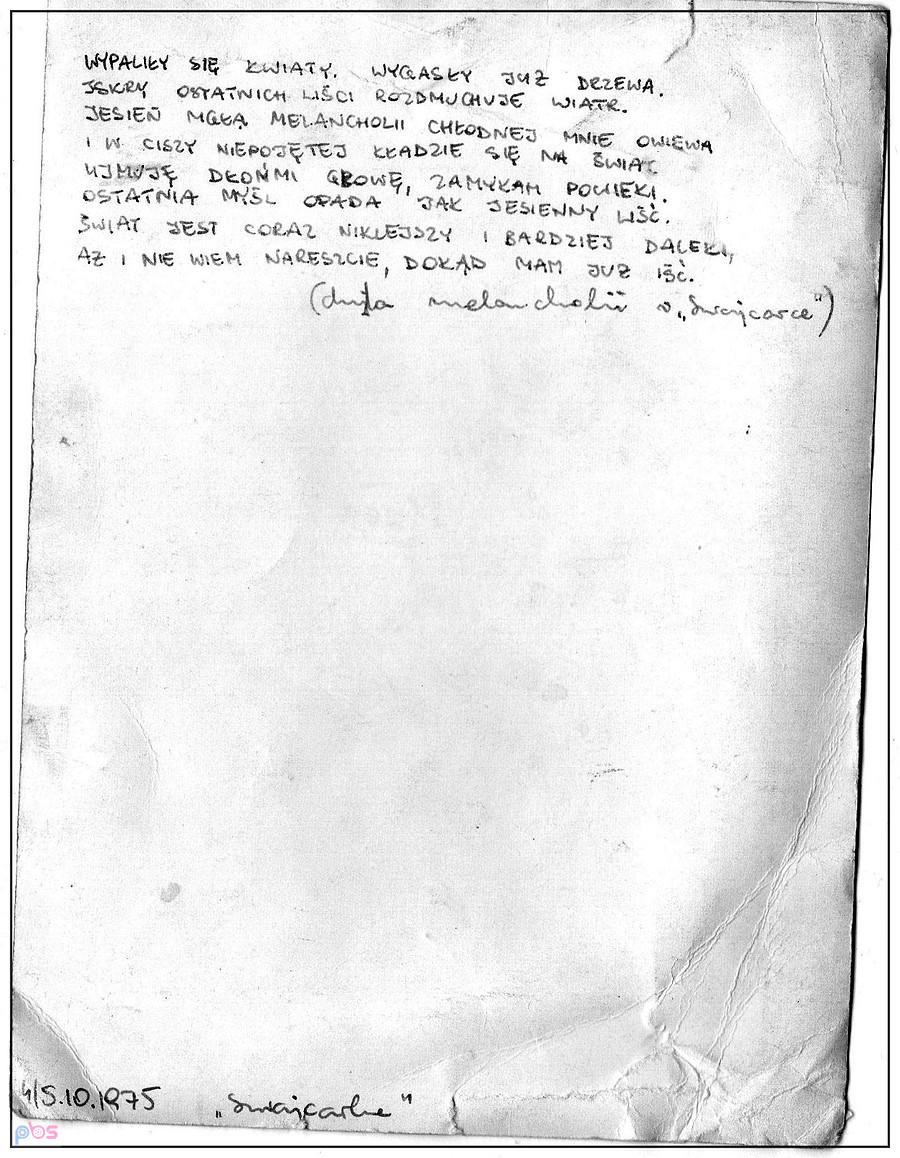 WYPALIŁY SIĘ KWIATY. WYGASŁY JUŻ DRZEWA.
JSKRY OSTATNICH LIŚCI ROZDMUCHUJE WIATR.
JESIEŃ MGŁĄ MELANCHOLII CHŁODNEJ MNIE OWIEWA
I W CISZY NIEPOJĘTEJ KŁADZIE SIĘ NA ŚWIAT
UJMUJĘ DŁOŃMI GŁOWĘ, ZAMYKAM POWIEKI.
OSTATNIA MYŚL OPADA JAK JESIENNY LIŚĆ.
ŚWIAT JEST CORAZ NIKLEJSZY I BARDZIEJ DALEKI,
AŻ I NIE WIEM NARESZCIE, DOKĄD MAM JUŻ IŚĆ.
(chwila melancholii w „Szwajcarce")
4/5.10.1975 „Szwajcarka"
pbs